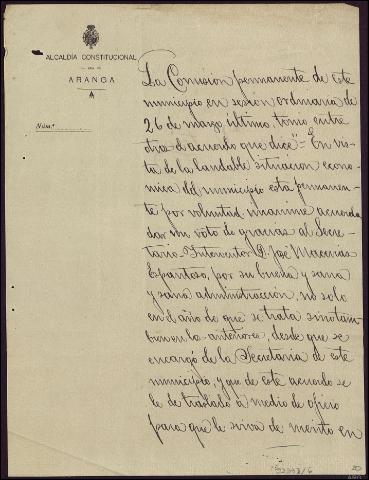 ALCALDÍA CONSTITUCIONAL
DE
ARANGA
Núm.
La Comisión permanente de este
municipio en sesión ordinaria de
26 de marzo último, tomó entre
otros el acuerdo que dice "= En vis-
ta de la laudable situacion econo-
mica del municipio esta permanen-
te por voluntad unanime acuerda
dar un voto de gracias al Secre-
tario-Interventor D. José Maceiras
Espantoso, por su buena y sana
y sana administracción, no solo
en el año de que se trata sino tam
bien en los anteriores, desde que se
encargó de la Secretaria de este
municipio, y que de este acuerdo se
le de traslado a medio de oficio
para que le sirva de merito en